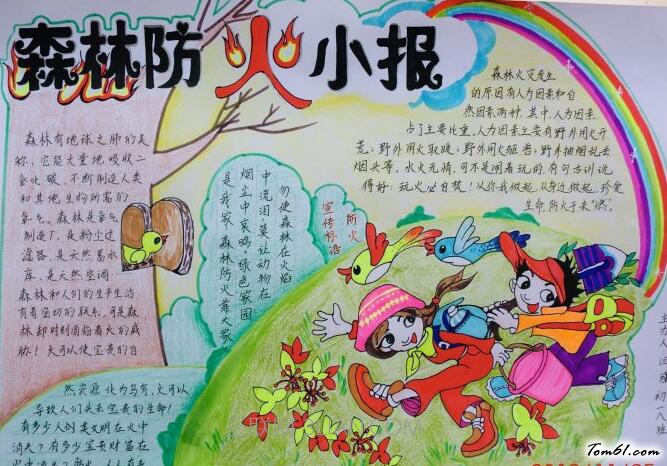 森林防火小报
森林有地球之肺的美
称，它能大量地吸收二
氧化碳，不断制造人类
和其他生物所需的
氧气。森林是氧气
制造厂、是粉尘过
滤器、是天然蓄水
库、是天然空调…
森林和人们的生产生活
有着密切的联系，可是森
林却时刻面临着火的威
胁！火可以使宝贵的自
然资源化为乌有，火可以
导致人们失去宝贵的生命！
有多少人们类文明在火中
消失？有多少宝贵财富在
防火
宣传标语
勿使森林在火焰
中流泪，莫让动物在
烟尘中哀鸣。绿色家园
是我家 森林防火靠大家
森林火灾发生
的原因有人为因素和自
然因素两种，其中，人为因素
占了主要比重，人为因素主要有野外用火开
荒；野外用火取暖；野外用火驱兽；野外抽烟乱丢
烟头等。水火无情，可不是闹着玩的，有句古训说
得好：玩火必自焚！从你我做起，从身边做起，珍爱
生命，防火于未“燃”。
初一八班
Tom61.com